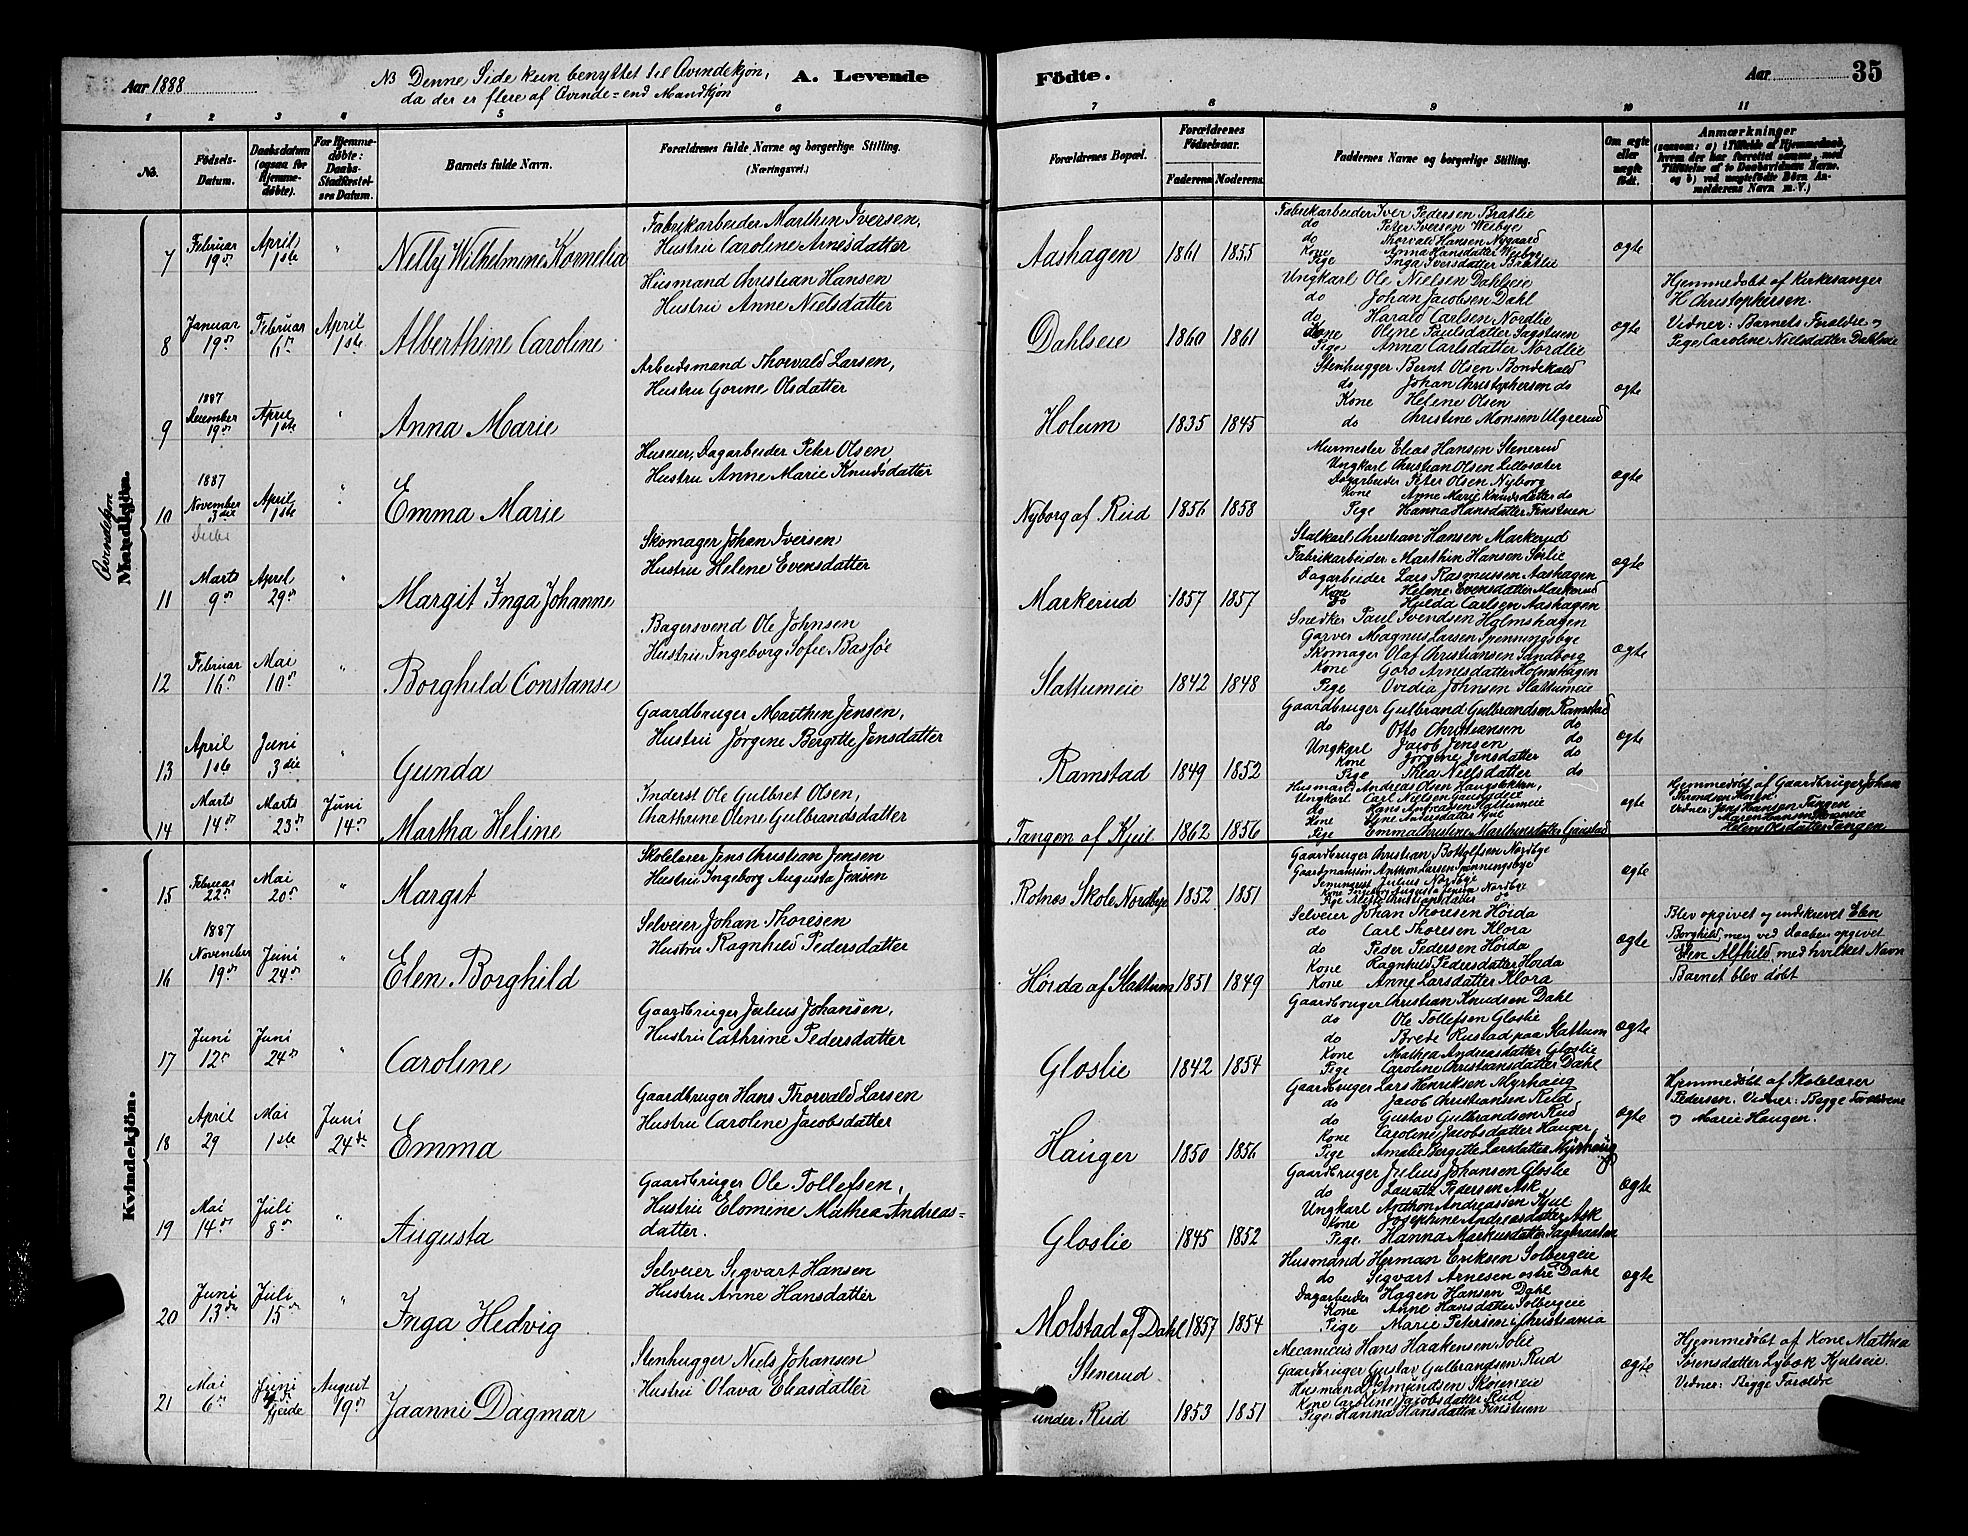 Aar 1888
NB Denne Side kun benyttet til Qvindekjøn,
da der er flere af Qvinde- end Mandkjøn
A. Levende
Födte.
Aar 35
1 2 3 4 5 6 7 8 9 10 11
No.
Födsels-Datum.
Daabsdatum (ogsaa for Hjemme-döbte).
For Hjemme-döbte: Daabs-Stadfæstel-ses Datum.
Barnets fulde Navn.
Forældrenes fulde Navne og borgerlige Stilling.
(Næringsvei.)
Forældrenes Bopæl.
Forældrenes Födselsaar.
Faderens. Moderens.
Faddernes Navne og borgerlige Stilling.
Om ægte eller uægte födt.
Anmærkninger
(saasom: a) i Tilfælde af Hjemmedaab, hvem der har forrettet samme, med Tilföielse af to Daabsvidners Navne, og b) ved uægtefödte Börn Anmelderens Navn m. V.)
Qvindekjøn
Mandkjön.
7 Februar 19de April 1ste " Nelly Wilhelmine Kornelia
Fabrikarbeider Marthin Iversen,
Hustru Caroline Arnesdatter
Aashagen 1861 1855
Fabrikarbeider Iver Pedersen Bratlie
do Peter Iversen Weibye
do Thorvald Hansen Nygaard
Kone Anna Hansdatter Weibye
Pige Inga Iversdatter Bratlie
ægte
8 Januar 19de Februar 6te April 1ste Alberthine Caroline
Husmand Christian Hansen
Hustru Anne Nielsdatter
Dahlseie 1860 1861
Ungkarl Ole Nielsen Dahlseie
do Johan Jacobsen Dahl
do Harald Carlsen Nordlie
Kone Oline Paulsdatter Sagstuen
Pige Anna Carlsdatter Nordlie
ægte
Hjemmedøbt af Kirkesanger
H Christophersen.
Vidner: Barnets Forældre og
Pige Caroline Nielsdatter Dahlseie
9 1887 December 19de April 1ste " Anna Marie
Arbeidsmand Thorvald Larsen,
Hustru Gorine Olsdatter
Holum 1835 1845
Stenhugger Bernt Olsen Bondekald
do Johan Christophersen do
Kone Helene Olsen
do Christine Monsen Ulgrerud
ægte
10 1887 November 3die April 1ste " Emma Marie
Huseier, Dagarbeider Peter Olsen
Hustru Anne Marie Knudsdatter
Nyborg af Rud 1856 1858
Murmester Elias Hansen Stenerud
Ungkarl Christian Olsen Lillesæter
Dagarbeider Peter Olsen Nyborg
Kone Anne Marie Knudsdatter do
Pige Hanna Hansdatter Finstuen
ægte
11 Marts 9de April 29de " Margit Inga Johanne
Skomager Johan Iversen
Hustru Helene Evensdatter
Markerud 1857 1857
Stalkarl Christian Hansen Markerud
Fabrikarbeider Marthin Hansen Sørlie
Dagarbeider Lars Rasmussen Aashagen
Kone Helene Evensdatter Markerud
do Hjelda Carlsen Aashagen
ægte
12 Februar 16de Mai 10de " Borghild Constanse
Bagersvend Ole Johnsen
Hustru Ingeborg Sofie Basjøe
Slattumeie 1842 1848
Snedker Paul Svendsen Holmshagen
Garver Magnus Larsen Spenningsbye
Skomager Olaf Christiansen Sandborg
Kone Goro Arnesdatter Holmshagen
Pige Ovidia Johnsen Slattumeie
ægte
13 April 1ste Juni 3die " Gunda
Gaardbruger Marthin Jensen,
Hustru Jørgine Bergitte Jensdatter
Ramstad 1849 1852
Gaardbruger Gulbrand Gulbrandsen Ramstad
do Otto Christiansen do
Ungkarl Jacob Jensen do
Kone Jørgine Jensdatter do
Pige Thea Nielsdatter do
ægte
14 Marts 14de Marts 23de Juni 14de Martha Heline
Inderst Ole Gulbret Olsen,
Chathrine Oline Gulbrandsdatter
Tangen af Kjeie 1862 1856
Husmand Andreas Olsen Haugslokken,
Ungkarl Carl Nielsen
do Hans Andreassen Slattumeie
Kone Andersdatter Kjul
Pige Emma Christine Marthinsdatter
ægte
Hjemmedøbt af Gaardbruger Johan
Vidner: Jens Hansen Tangen
Maren Hansen
Helene Olsdatter Tangen
Kvindekjön.
15 Februar 22de Mai 20de " Margit
Skolelærer Jens Christian Jensen
Hustru Ingeborg Augusta Jensen
Rotnes Skole Nordbye 1852 1851
Gaardbruger Christian Bottolfsen Nordbye
Gaardmandssøn Anthon Larsen Spenningsbye
Seminarist Julius Nordbye
Kone Ingeborg Augusta Jensen Nordbye
Pige Christiansdatter do
ægte
16 1887 November 19de Juni 24de " Elen Borghild
Selveier Johan Thoresen
Hustru Ragnhild Pedersdatter
Høida af Slattum 1851 1849
Selveier Johan Thoresen Høida
do Carl Thoresen Klora
do Peder Pedersen Høida
Kone Ragnhild Pedersdatter Høida
Kone Anne Larsdatter Klora
ægte
Blev opgivet og indskrevet Elen
Borghild, men ved daaben opgivet
Elen Alfhild, med hvilket Navn
Barnet blev døbt
17 Juni 12de Juni 24de " Caroline
Gaardbruger Julius Johansen,
Hustru Cathrine Pedersdatter
Gloslie 1842 1854
Gaardbruger Christian Knudsen Dahl
do Ole Tollefsen Gloslie
do Brede Rustad paa Slattum
Kone Mathea Andreasdatter Gloslie
Pige Caroline Christiansdatter Dahl
ægte
18 April 29 Mai 1ste Juni 24de Emma
Gaardbruger Hans Thorvald Larsen
Hustru Caroline Jacobsdatter
Hauger 1850 1856
Gaardbruger Lars Henriksen Myrhaug
do Jacob Christiansen Rud
do Gustav Gulbrandsen Rud
Kone Caroline Jacobsdatter Hauger
Pige Amalie Bergitte Larsdatter Myrhaug
ægte
Hjemmedøbt af Skolelærer
Pedersen. Vidner: Begge Forældrene
og Marie Haugen.
19 Mai 14de Juli 8de " Augusta
Gaardbruger Ole Tollefsen,
Hustru Elomine Mathea Andreas-
datter.
Gloslie 1845 1852
Gaardbruger Julius Johansen Gloslie
do Lauritz Pedersen Ask
Ungkarl Anthon Andreassen Kjul
Kone Josephine Andreasdatter Ask
Pige Hanna Markusdatter Sagbraaten
ægte
20 Juni 13de Juli 15de " Inga Hedvig
Selveier Sigvart Hansen
Hustru Anne Hansdatter
Molstad af Dahl 1857 1854
Husmand Herman Eriksen Solbergeie
do Sigvart Arnesen østre Dahl
Dagarbeider Hagen Hansen Dahl
Kone Anne Hansdatter Solbergeie
Pige Marie Petersen i Christiania
ægte
21 Mai 6te Juni fjerde August 19de Jaanni Dagmar
Stenhugger Niels Johansen
Hustru Olava Eliasdatter
Stenerud
under Rud 1853 1851
Mecanicus Hans Haakensen Solie
Gaardbruger Gustav Gulbrandsen Rud
Husmand Amundsen Skoreneie
Kone Caroline Jacobsdatter Rud
Pige Hanna Hansdatter Finstuen
ægte
Hjemmedøbt af Kone Mathea
Sørensdatter Lybæk Kjulseie.
Vidner: Begge Forældre